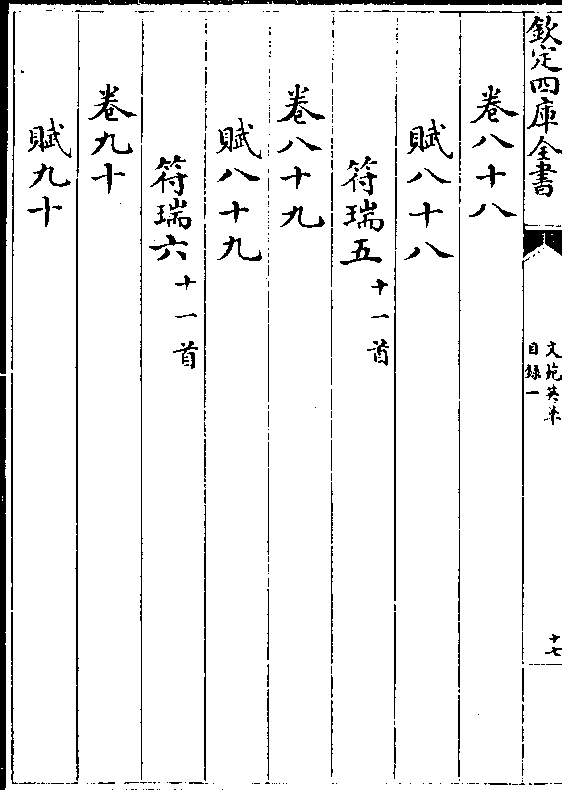 欽定四庫全書
文苑英華
目錄一
十七
卷八十八
賦八十八
符瑞五十一首
卷八十九
賦八十九
符瑞六十一首
卷九十
賦九十